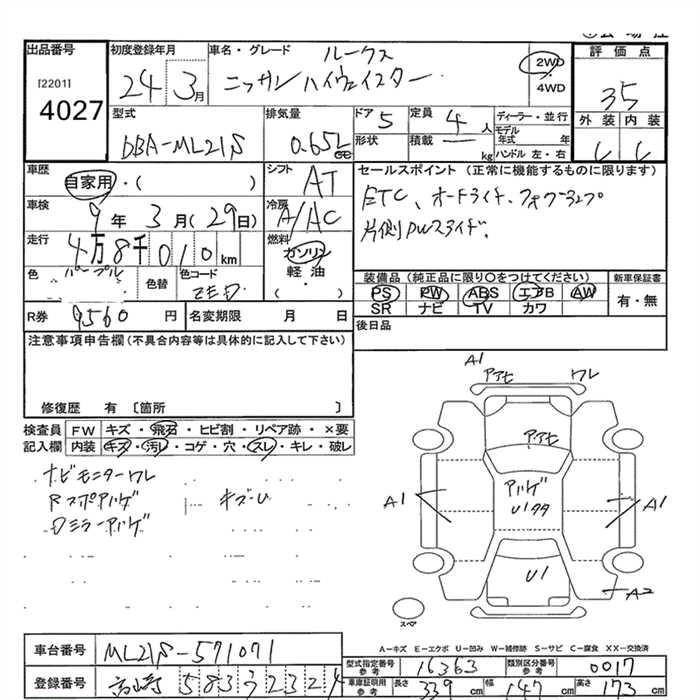 出品番号
[2201]
4027
初度登録年月
24 3月
車名・グレード
ルークス
ニッサン ハイウェイスター
2WD
・
4WD
評価点
35
外装 内装
C C
型式
DBA-ML21S
排気量
0.65L
ドア 5
形状
定員 4人
積載 ー kg
ディーラー・並行
モデル年式 年
ハンドル 左・右
車歴
自家用・( )
シフト
AT
車検
9年 3月(29日)
冷房
A/AC
走行
4万8千010km
燃料
ガソリン
軽・油
( )
色
パープル
色替
色コード
ZED
R券 9560 円
名変期限 月 日
セールスポイント(正常に機能するものに限ります)
ETC、オートライト、フォグランプ
片側PWスライド、
装備品(純正品に限り○をつけてください)
PS PW ABS エアB AW
SR ナビ TV カワ
新車保証書
有・無
後日品
注意事項申告欄(不具合内容等は具体的に記入して下さい)
修復歴 有〔箇所 〕
検査員記入欄
FW キズ・飛石・ヒビ割・リペア跡・×要
内装 キズ・汚レ・コゲ・穴・スレ・キレ・破レ
ナビモニターワレ
Rスポアハゲ キズ・U
Dミラーアハゲ
A1
アアヒ ワレ
アアヒ
アハゲ
U1タタ
A1
A1
U1
A2
スペア
A-キズ E-エクボ U-凹み W-補修跡 S-サビ C-腐食 XX-交換済
車台番号 ML21S-571071
登録番号 高崎 583 う 2324
型式指定番号参考 16363
類別区分番号参考 0017
車庫証明用参考 長さ 339cm 幅 147cm 高さ 173cm